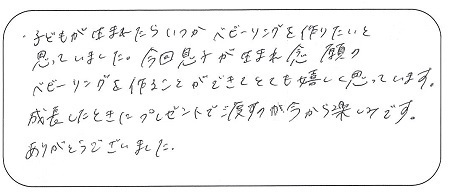 ・子どもが生まれたらいつかベビーリングを作りたいと
思っていました。今回息子が生まれ念願の
ベビーリングを作ることができてとても嬉しく思っています。
成長したときにプレゼントで渡すのが今から楽しみです。
ありがとうございました.